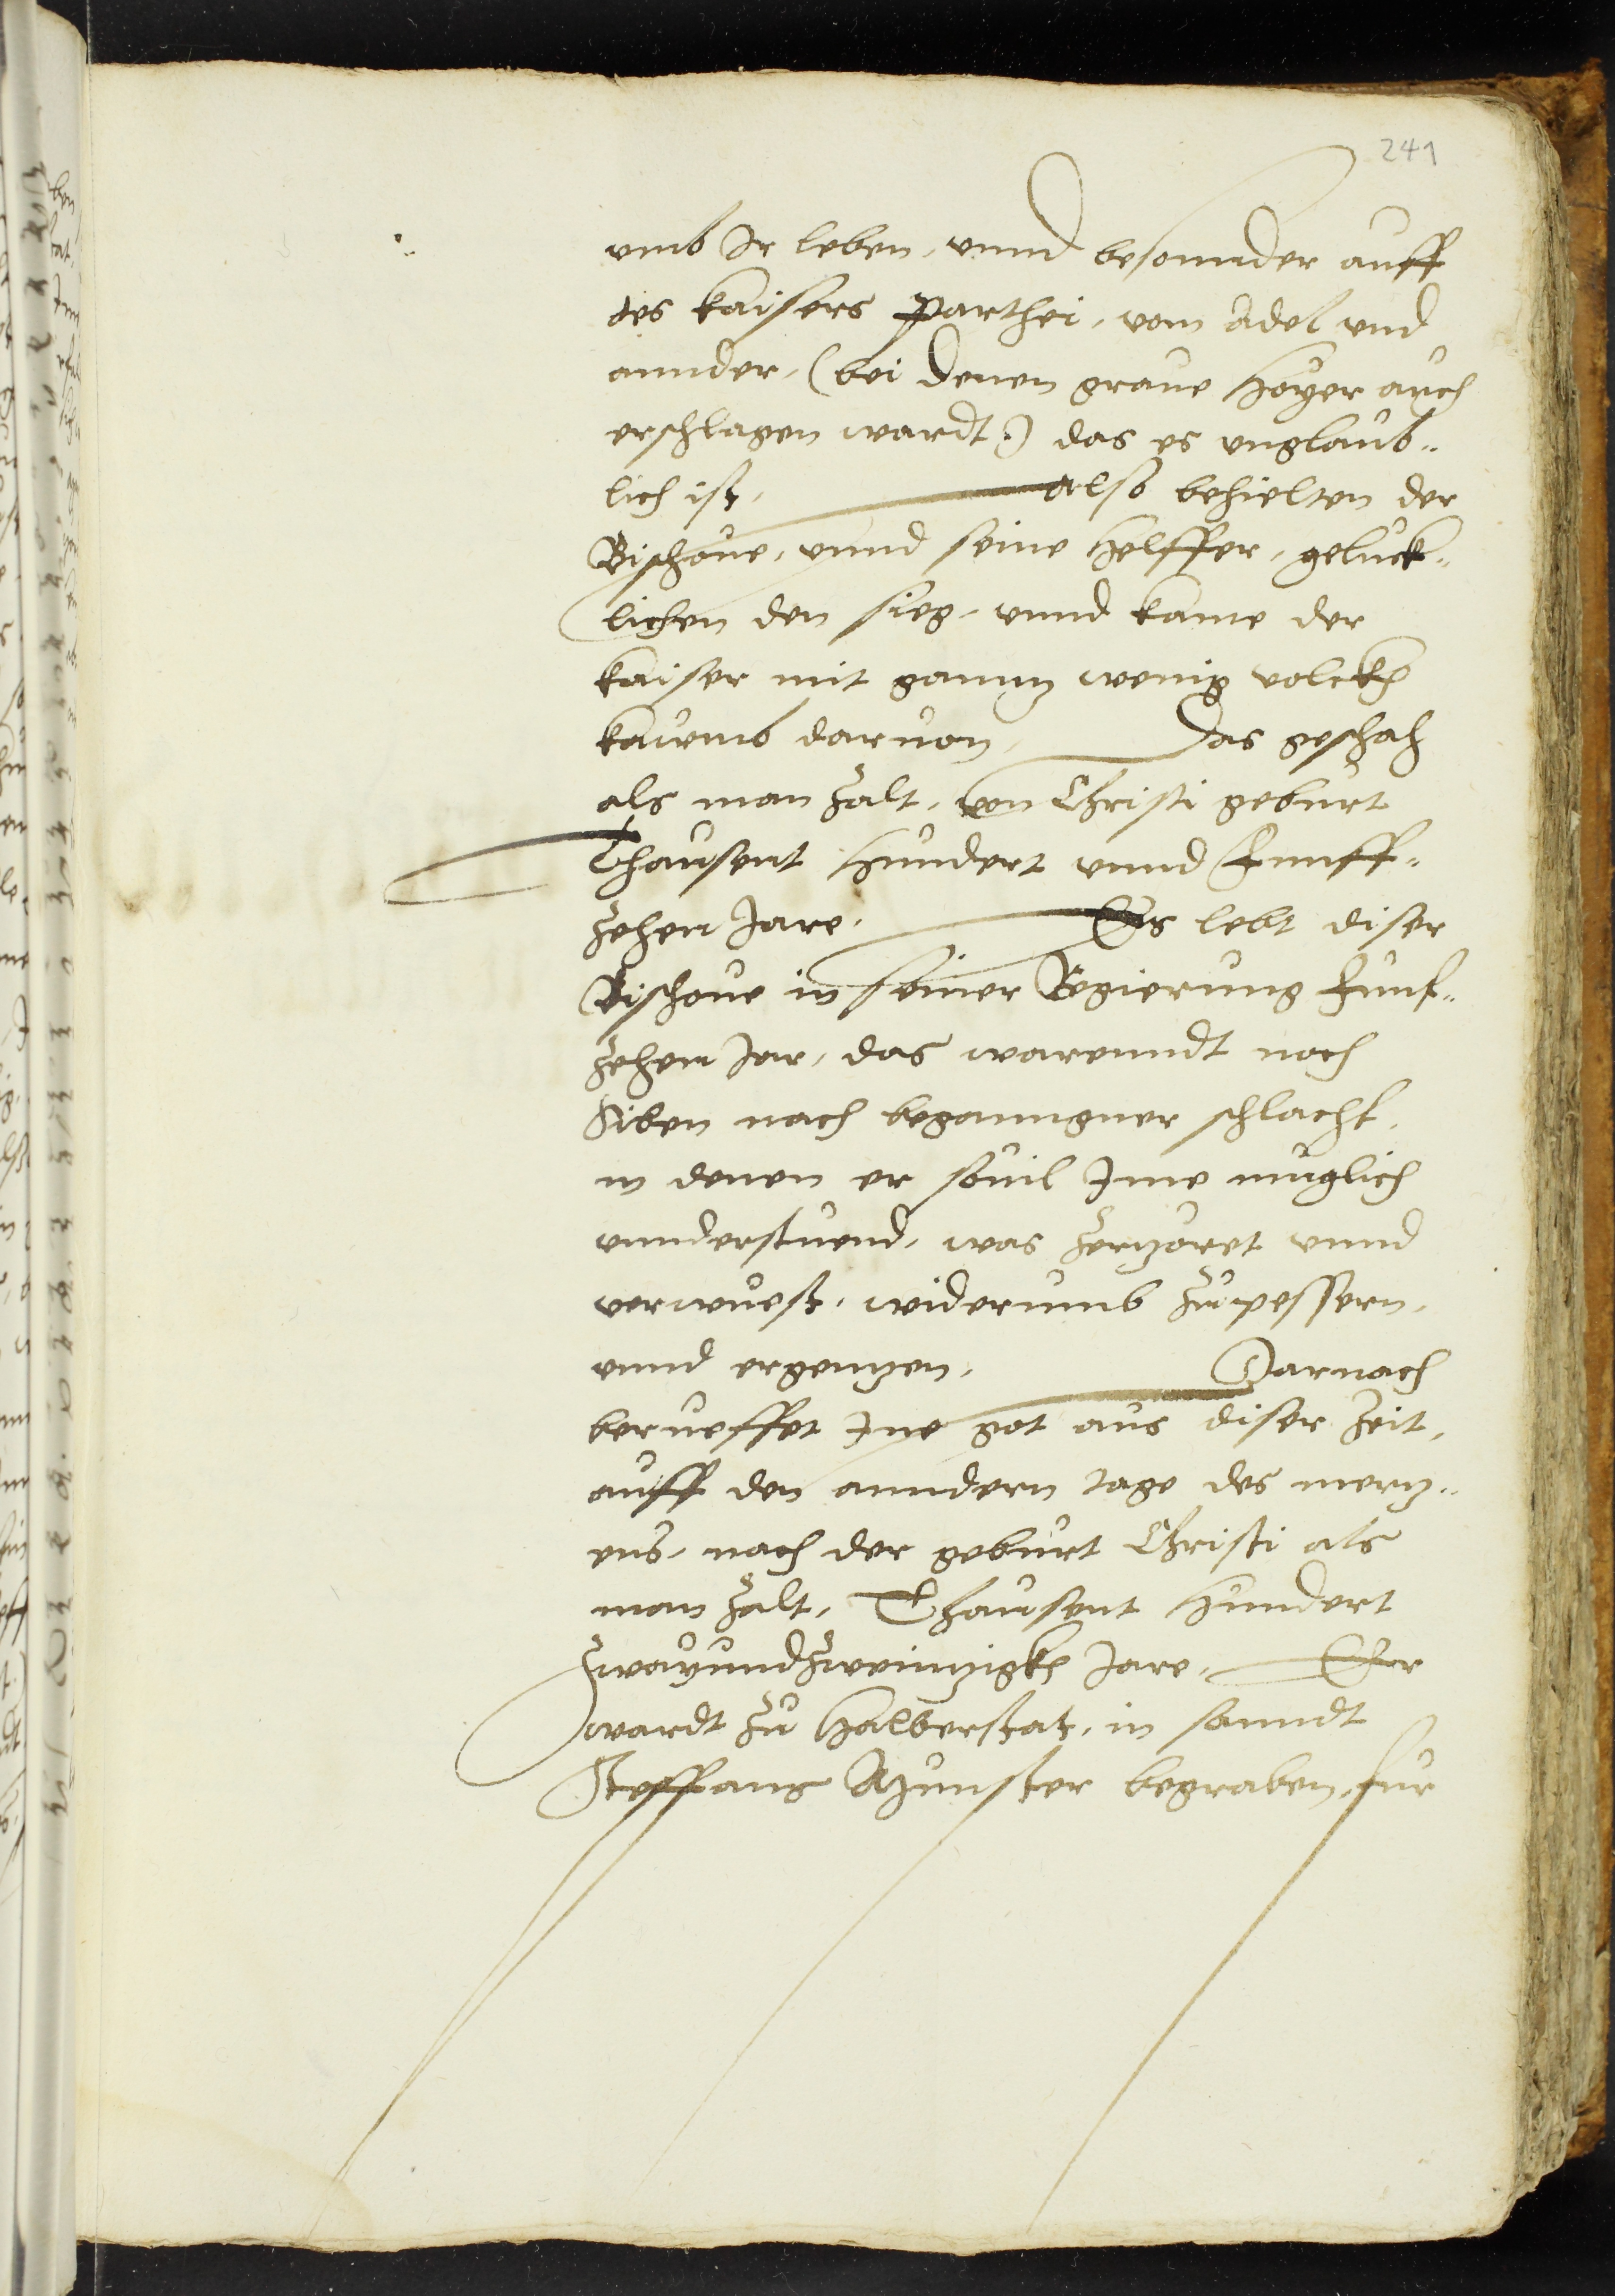 241
vmb Ir leben, vnnd besonnder auff
des kaisers parthei, vom Adel vnd
annder, (bei denen graue Hoyer auch
erschlagen wardt) das es vnglaub„
lich ist, Also behielten der
Bischoue, vnnd seine Helffer, gelück„
lichen den sieg, vnnd kame der
kaiser mit gannz wenig volckh
kaumb daruon, Das geschah
als man zalt, von Christi geburt
Thausent Hundert vnnd Funff„
zehen Jare. Es lebt diser
Bischoue in seiner Regierung Funf„
zehen Jar, das warenndt noch
Siben nach beganngner schlacht,
in denen er souil Jme muglich
vnnderstuend, was zerzoret vnnd
verwuest, widerumb zupessern,
vnnd ergenzen, Darnach
berueffet Jne got aus diser Zeit,
auff den anndern tage des merz„
ens, nach der geburt Christi als
man zalt, Thausent Hundert
Zwayundzweinzigkh Jare, Er
wardt zu Halberstatt, in sanndt
Steffans Munster begraben, fur